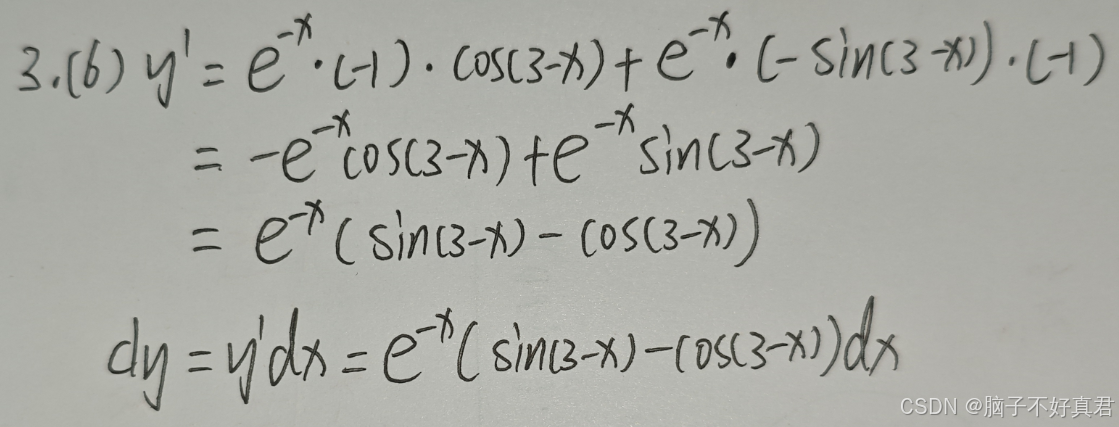 3.(6) y' = e^{-x}·(-1)·cos(3-x)+e^{-x}·(-sin(3-x))·(-1)
= -e^{-x}cos(3-x)+e^{-x}sin(3-x)
= e^{-x}(sin(3-x)-cos(3-x))
dy = y'dx = e^{-x}(sin(3-x)-cos(3-x))dx
CSDN @脑子不好真君